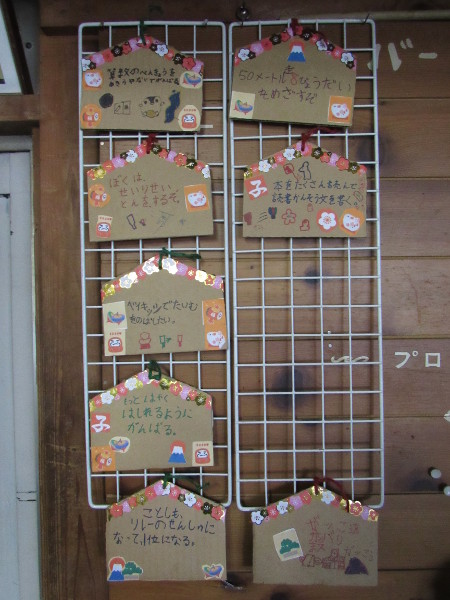 算数のべんきょうを
ぼくは、
せいりせい
とんをするぞ。
ベイキッツでたいむ
をのばしたい。
子
もっとはやく
はしれるように
がんばる。
ことしも、
リレーのせんしゅに
なって、1位になる。
50メートル8びょうだい
をめざすぞ
子
本をたくさんよんで
読書かんそう文を書く。
バー
プロ